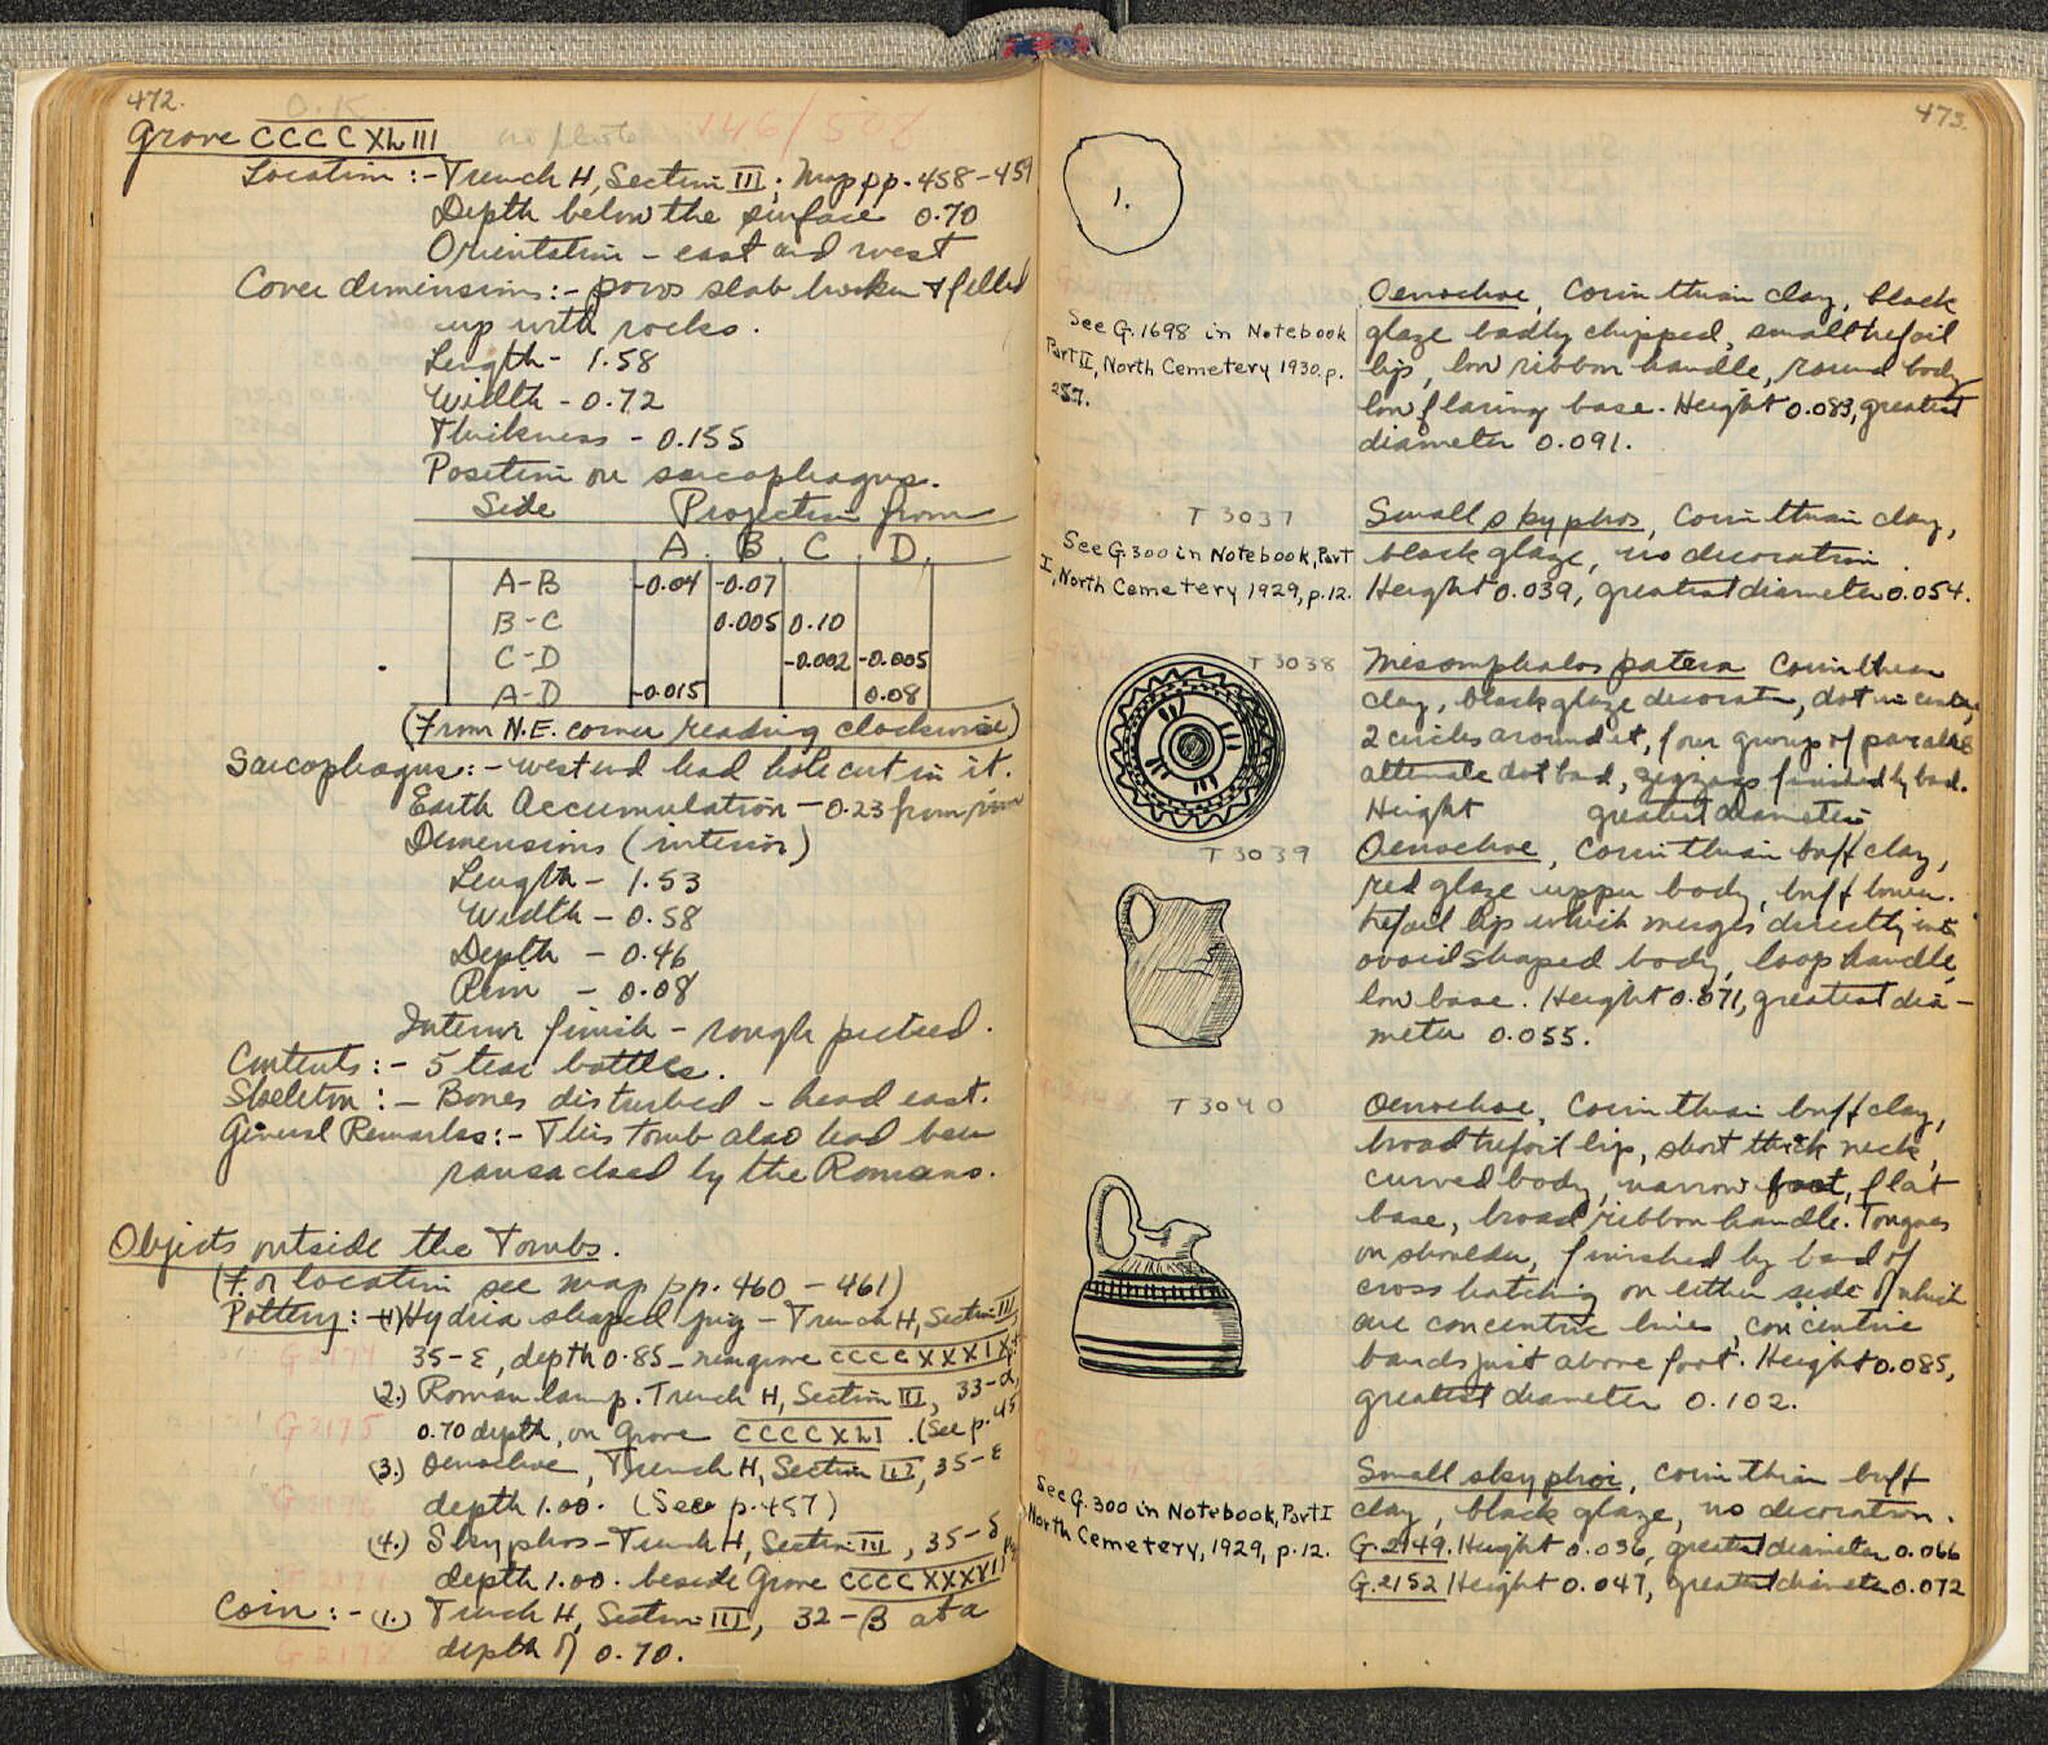 472.
O.K.
Grave CCCCXLIII
no photo 146/528
Location :- Trench H, Section III; Map pp. 458-459
Depth below the surface 0.70
Orientation - east and west
Cover dimensions :- poros slab broken & filled
up with rocks.
Length - 1.58
Width - 0.72
Thickness - 0.155
Position on sarcophagus.
Side Projection from
A. B. C. D.
A-B -0.04 -0.07
B-C 0.005 0.10
C-D -0.002 -0.005
A-D -0.015 0.08
(From N.E. corner reading clockwise)
Sarcophagus :- west end had hole cut in it.
Earth Accumulation - 0.23 from rim
Dimensions (interior)
Length - 1.53
Width - 0.58
Depth - 0.46
Rim - 0.08
Interior finish - rough picked.
Contents :- 5 tear bottles.
Skeleton :- Bones disturbed - head east.
General Remarks :- This tomb also had been
ransacked by the Romans.
Objects outside the Tombs.
(For location see map pp. 460 - 461)
Pottery :- (1) Hydria shaped jug - Trench H, Section III
G 2174 35-ε, depth 0.85 - near grave CCCCXXXIX
(2.) Roman lamp. Trench H, Section III, 33-α,
G 2175 0.70 depth, on Grave CCCCXLI. (See p. 45
(3.) Oenochoe, Trench H, Section III, 35-ε
depth 1.00. (See p. 457)
(4.) Skyphos - Trench H, Section III, 35-δ
depth 1.00. beside Grave CCCCXXXVII
Coin :- (1.) Trench H, Section III, 32-β at a
G 2178 depth of 0.70.
473.
1.
Oenochoe, Corinthian clay, black
glaze badly chipped, small trefoil
lip, low ribbon handle, round body
low flaring base. Height 0.083, greatest
diameter 0.091.
See G. 1698 in Notebook
Part II, North Cemetery 1930. p.
257.
T 3037
Small skyphos, Corinthian clay,
black glaze, no decoration.
Height 0.039, greatest diameter 0.054.
See G. 300 in Notebook, Part
I, North Cemetery 1929, p. 12.
T 3038
Mesomphalos patera Corinthian
clay, black glaze decoratn, dot in center,
2 circles around it, four groups of parallels
alternate dot band, zigzags finished by band.
Height greatest diameter
T 3039
Oenochoe, Corinthian buff clay,
red glaze upper body, buff lower.
trefoil lip which merges directly into
ovoid shaped body, loop handle,
low base. Height 0.071, greatest dia-
meter 0.055.
T 3040
Oenochoe, Corinthian buff clay,
broad trefoil lip, short thick neck,
curved body, narrow foot, flat
base, broad ribbon handle. Tongues
on shoulder, finished by band of
cross hatching on either side of which
are concentric lines, concentric
bands just above foot. Height 0.085,
greatest diameter 0.102.
Small skyphoi, Corinthian buff
clay, black glaze, no decoration.
G. 2149. Height 0.036, greatest diameter 0.066
G. 2152 Height 0.047, greatest diameter 0.072
See G. 300 in Notebook, Part I
North Cemetery, 1929, p. 12.